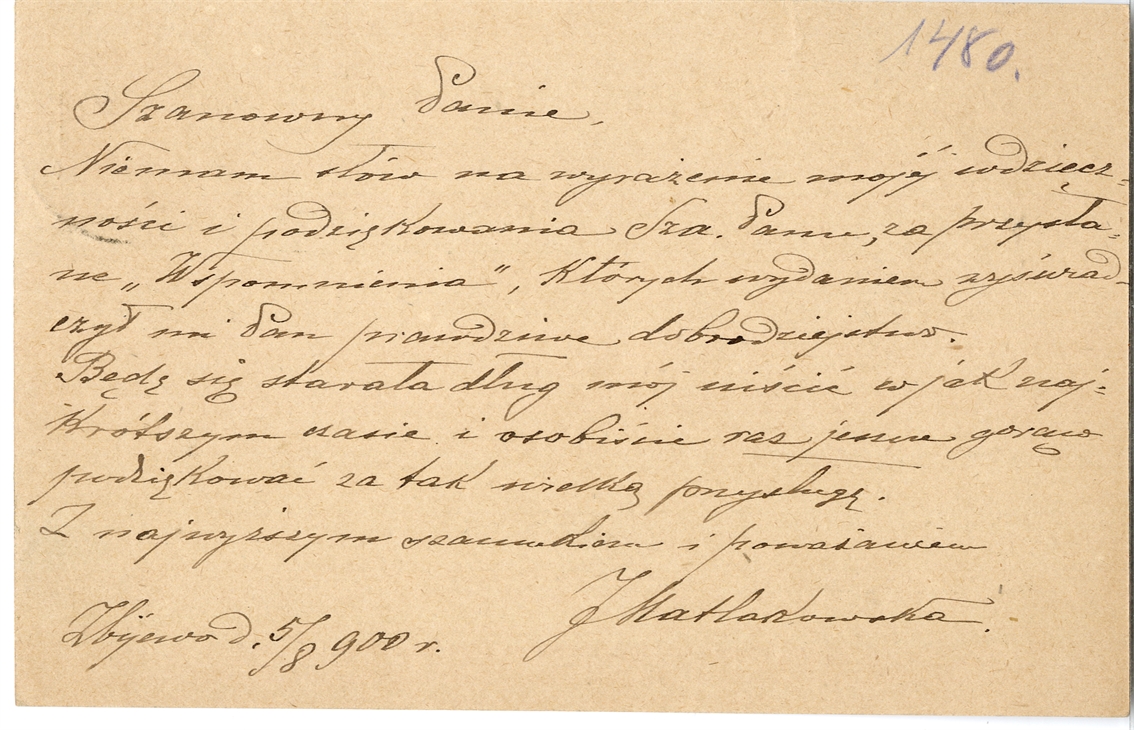 1480.
Szanowny Panie,
Niemam słów na wyrażenie mojéj wdzięcz-
ności i podziękowania Sza. Panu, za przysła-
ne „Wspomnienia", których wydaniem wyświad-
czył mi Pan prawdziwe dobrodziejstwo.
Będę się starała dług mój uiścić w jak naj-
krótszym czasie i osobiście raz jeszcze gorąco
podziękować za tak wielką przysługę.
Z najwyższym szacunkiem i poważaniem
JMatlakowska.
Zbijewo d. 5/8 900 r.